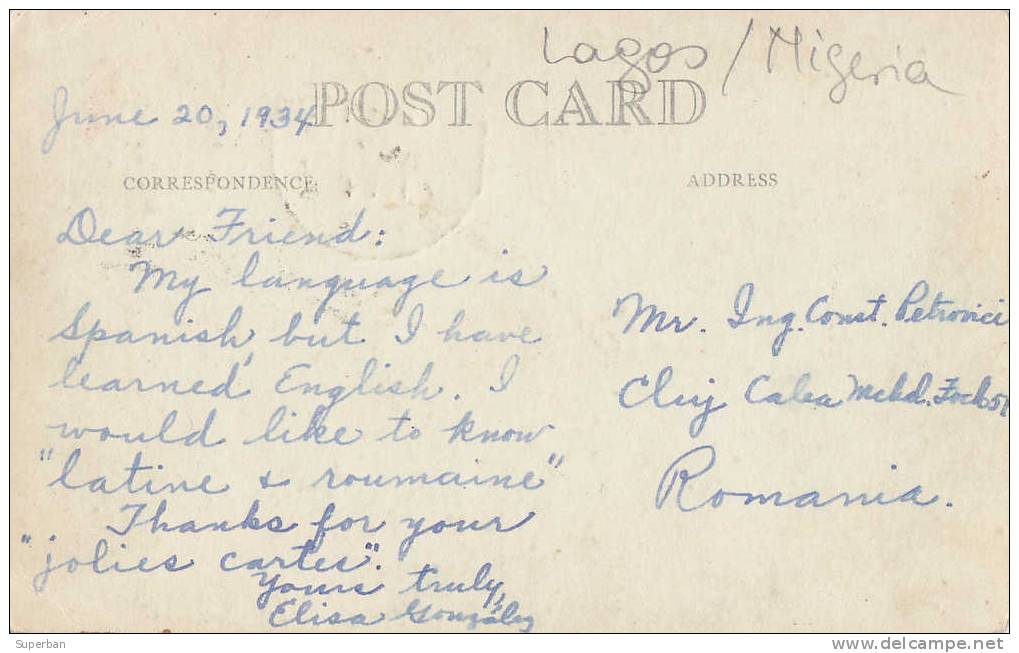 Lagos / Nigeria
POST CARD
June 20, 1934
CORRESPONDENCE
ADDRESS
Dear Friend:
My language is
Spanish, but I have
learned English. I
would like to know
"latine & roumaine"
Thanks for your
"jolies cartes".
Yours truly,
Elisa González
Mr. Ing. Const. Petrovici
Cluj Calea Fock 51
Romania.
Superban
www.delcampe.net